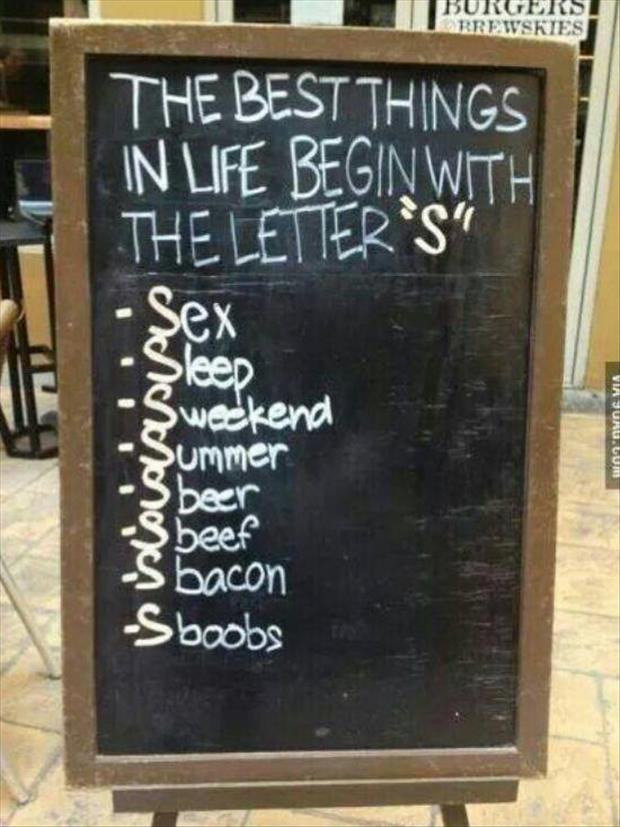 BURGERS
BREWSKIES
THE BEST THINGS
IN LIFE BEGIN WITH
THE LETTER "S"
- Sex
- Sleep
- Sweekend
- Summer
- Sbeer
- Sbeef
- Sbacon
- Sboobs
VIA 9GAG.COM